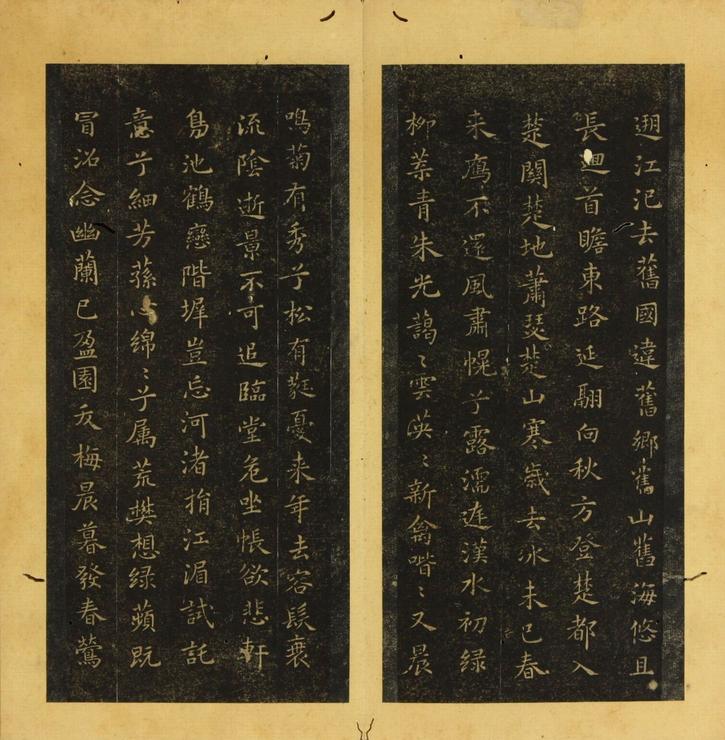 遡江汜去舊國違舊鄉舊山舊海悠且
長迴首瞻東路延翮向秋方登楚都入
楚關楚地蕭瑟楚山寒歲去冰未已春
来鴈不還風肅幌兮露濡庭漢水初綠
柳葉青朱光藹〻雲英〻新禽喈〻又晨
鳴菊有秀兮松有蕤憂来年去容髮衰
流陰逝景不可追臨堂危坐帳欲悲軒
鳧池鶴戀階墀豈忘河渚捐江湄試託
意兮細芳蓀心綿〻兮属荒樊想綠蘋既
冒沼念幽蘭已盈園夭梅晨暮發春鶯